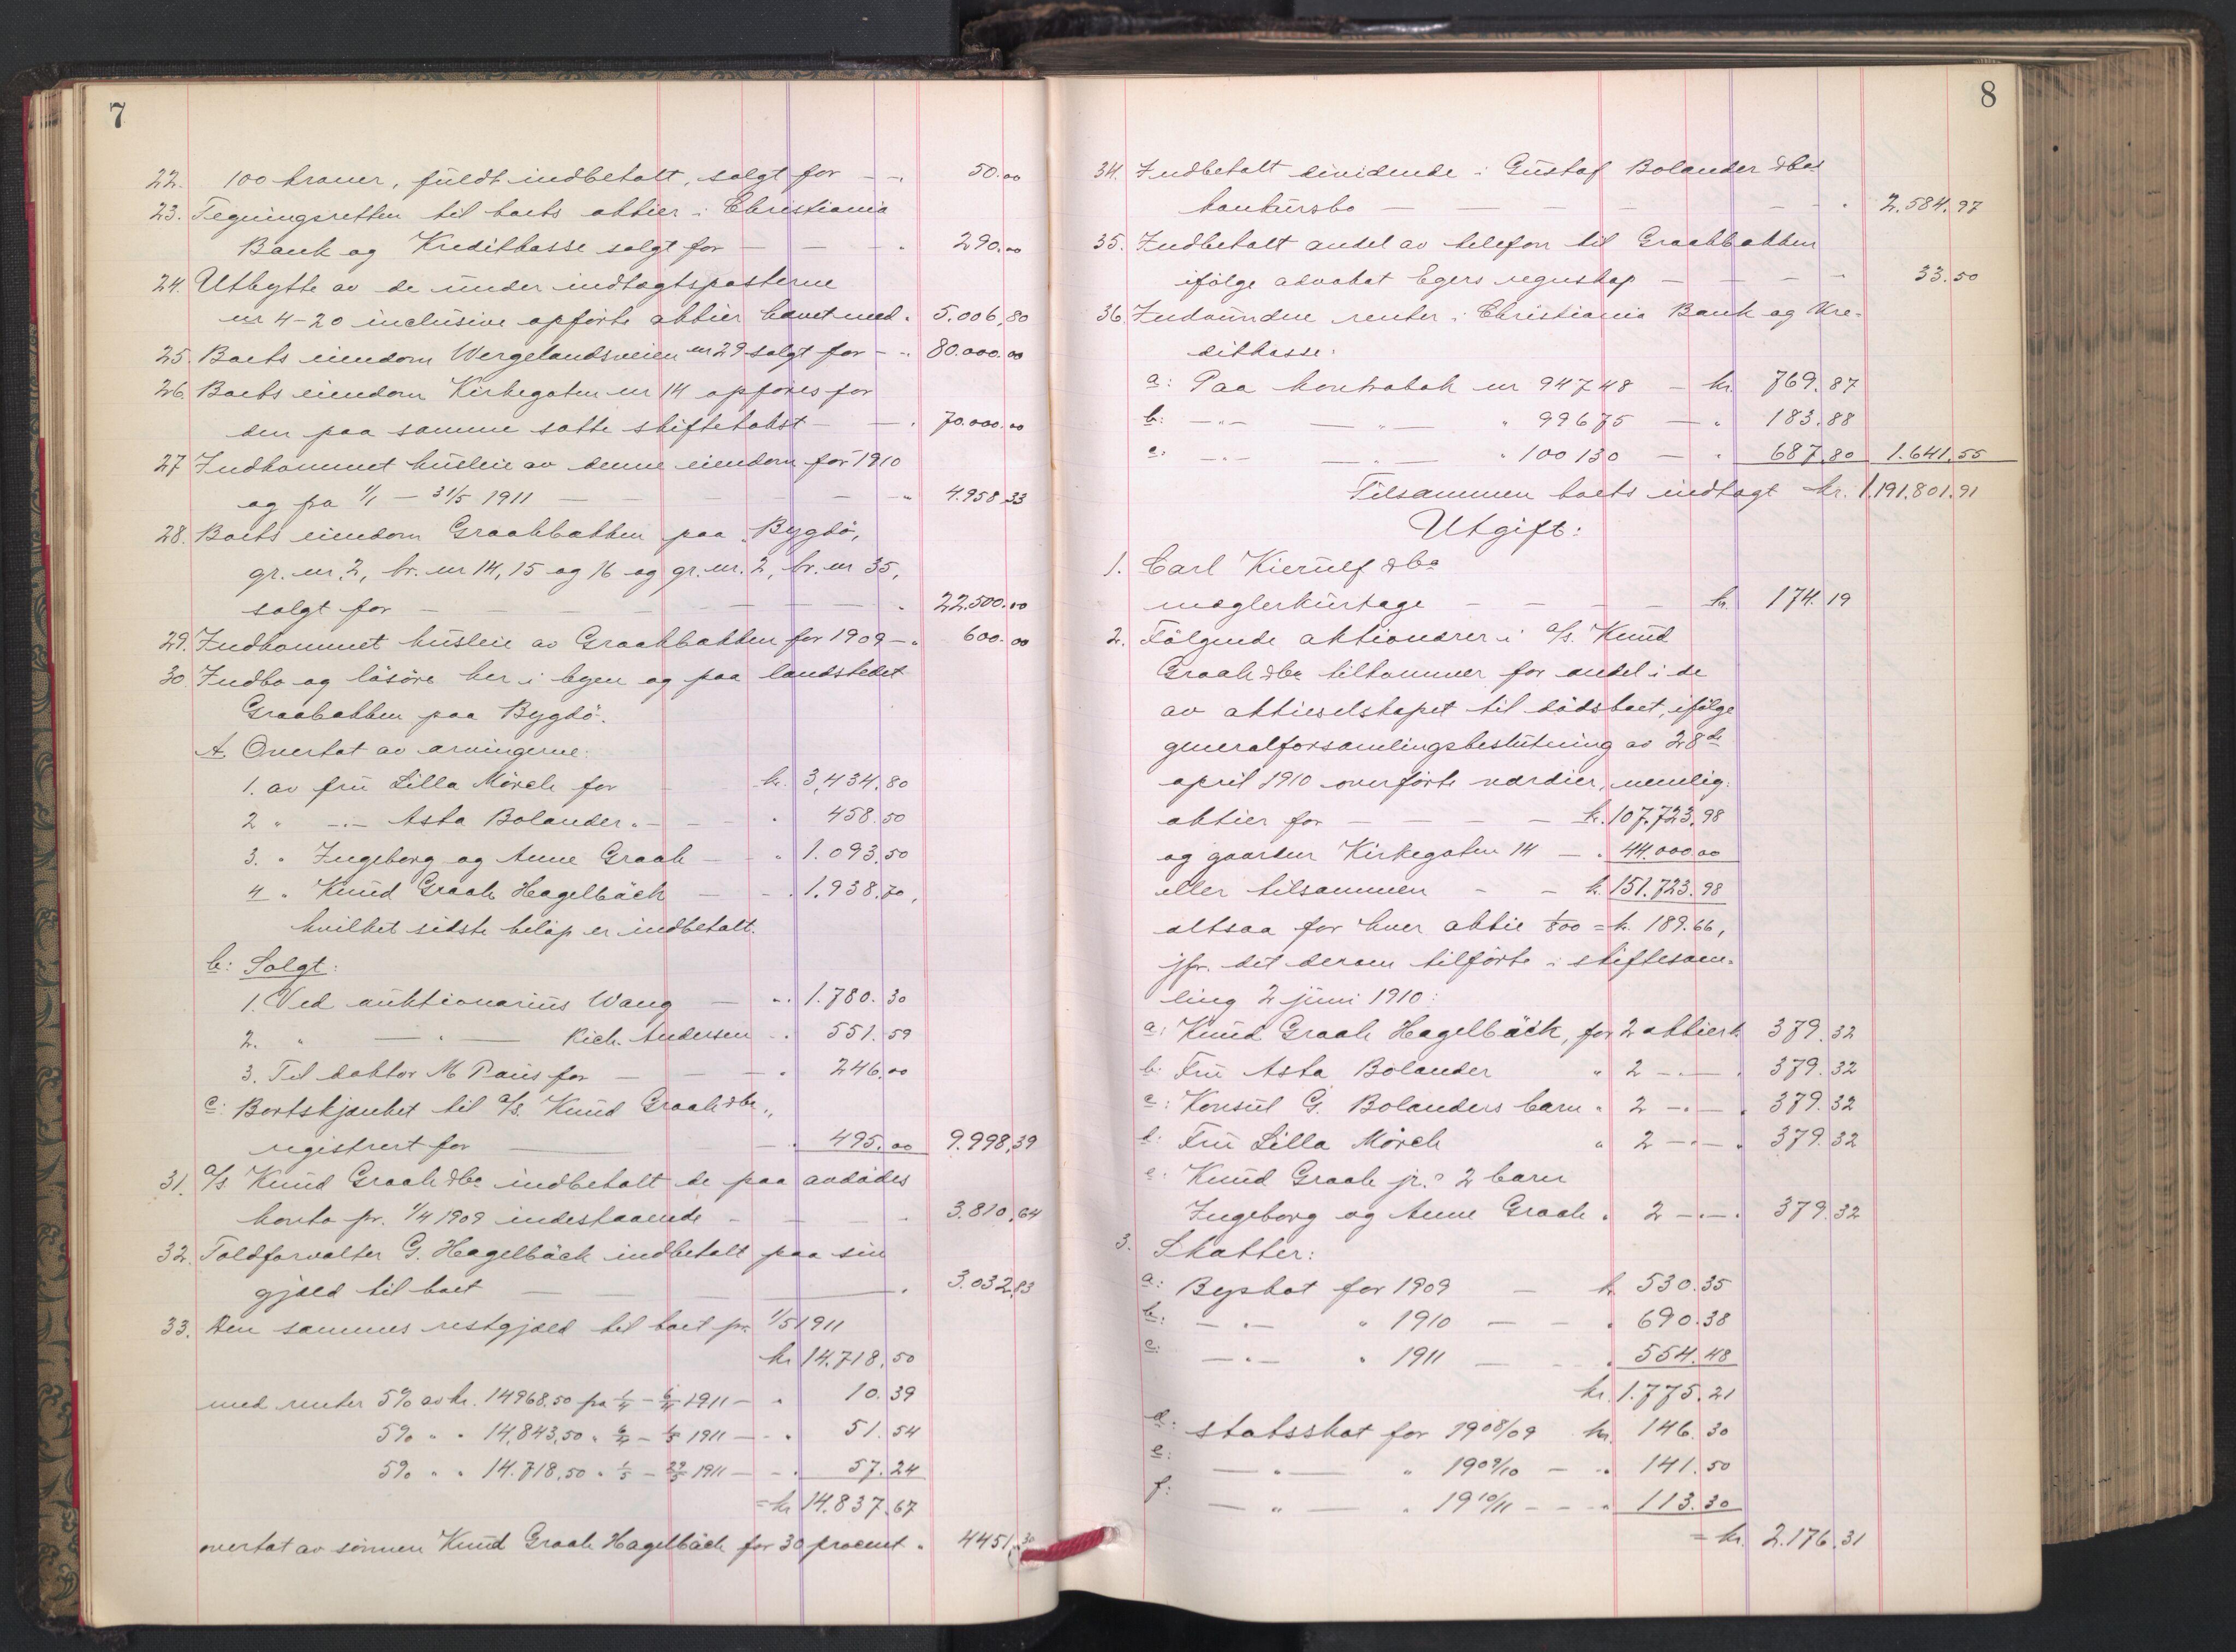 7
22. 100 kroner, fuldt indbetalt, solgt for — „ 50.00
23. Tegningsretten til boets aktier i Christiania
Bank og Kreditkasse solgt for — — — „ 290.00
24. Utbytte av de under indtægtsposterne
nr 4-20 inclusive opførte aktier hævet med „ 5.006,80
25. Boets eiendom Wergelandsveien nr 29 solgt for — „ 80.000.00
26. Boets eiendom Kirkegaten nr 14 opføres for
den paa samme satte skiftetakst — — „ 70.000.00
27. Indkommet husleie av denne eiendom for 1910
og fra 1/1 — 31/5 1911 — — — — — — „ 4.958.33
28. Boets eiendom Graahbakken paa Bygdö,
gr. nr. 2, br. nr 14, 15 og 16 og gr. nr. 2, br. nr 35,
solgt for — — — — — — — „ 22.500.00
29. Indkommet husleie av Graahbakken for 1909 — „ 600.00
30. Indbo og løsøre her i byen og paa landstedet
Graabakken paa Bygdö.
A. Overtat av arvingerne:
1. av fru Lilla Mörch for — kr. 3,434.80
2 „ —„— Asta Bolander „ — — „ 458.50
3. „ Ingeborg og Anne Graah — — „ 1.093.50
4 „ Knud Graah Hagelbäck — — „ 1.938.70,
hvilket sidste beløp er indbetalt.
b: Solgt:
1. Ved auktionarius Wang — „ 1.780.30
2. „ — „ — Rich. Andersen — „ 551.59
3. Til doktor M Paus for — — — „ 246.00
c: Bortskjænket til a/s. Knud Graah & Co.,
registrert for — — „ 495.00 9.998,39
31. a/s. Knud Graah & Co indbetalt de paa avdødes
konto pr. 1/4 1909 indestaaende — — — „ 3.810,64
32. Toldforvalter G. Hagelbäck indbetalt paa sin
gjæld til boet — — — — „ 3.032,83
33. Den sammes restgjæld til boet pr. 1/5 1911
kr 14.718.50
med renter 5% av kr. 14968.50 fra 1/4 — 6/4 1911 — „ 10.39
5% „ „ 14,843,50 „ 6/4 — 1/5 1911 — „ 51.54
5% „ „ 14.718,50 „ 1/5 — 29/5 1911 — „ 57.24
= kr 14.837.67
overtat av sønnen Knud Graah Hagelbäck for 30 procent „ 4451,30
8
34. Indbetalt dividende i Gustaf Bolander & Cos
konkursbo — — — — — „ 2.584.97
35. Indbetalt andel av telefon til Graahbakken
ifølge advokat Egers regnskap — — — — 33.50
36. Indvundne renter i Christiania Bank og Kre-
ditkasse:
a: Paa kontrabok nr 94748 — kr. 769.87
b: —„— —„— „ 99675 — „ 183.88
c: —„— —„— „ 100130 — „ 687.80 1.641.55
Tilsammen boets indtægt kr. 1,191.801.91
Utgift:
1. Carl Kierulf & Co
mæglerkurtage — — — — kr. 174.19
2. Følgende aktionærer i a/s. Knud
Graah & Co tilkommer for andel i de
av aktieselskapet til dødsboet, ifølge
generalforsamlingsbeslutning av 28de
april 1910 overførte værdier, nemlig:
aktier for — — — — kr. 107.723.98
og gaarden Kirkegaten 14 — „ 44.000.00
eller tilsammen — — kr. 151.723.98
altsaa for hver aktie 1/800 = kr. 189.66,
jfr. det derom tilførte i skiftesam-
ling 2 juni 1910:
a: Knud Graah Hagelbäck, for 2 aktier kr. 379.32
b: Fru Asta Bolander „ 2 —„— „ 379.32
c: Konsul G. Bolanders barn „ 2 —„— „ 379.32
d: Fru Lilla Mörch „ 2 —„— „ 379.32
e: Knud Graah jr.s 2 barn
Ingeborg og Anne Graah „ 2 —„— „ 379.32
3. Skatter:
a: Byskat for 1909 — kr. 530.35
b: —„— „ 1910 — — „ 690.38
c: —„— „ 1911 — — „ 554.48
kr. 1.775.21
d: statsskat for 1908/09 kr. 146.30
e: — „ — „ 1909/10 — „ 141.50
f: — „ — „ 1910/11 — — „ 113.30
= kr. 2.176.31